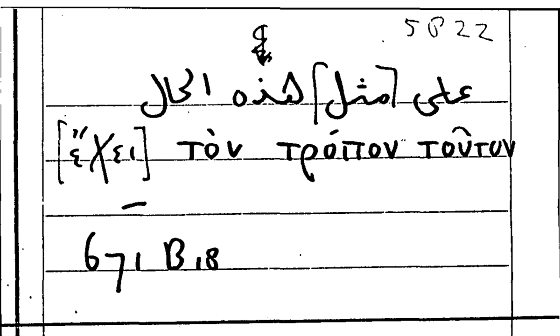 5P22
على [مثل] هذه الحال
[ἔχει] τὸν τρόπον τοῦτον
671 B18